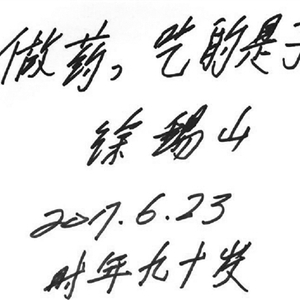 做药，吃的是
徐锡山
2017.6.23
时年九十岁